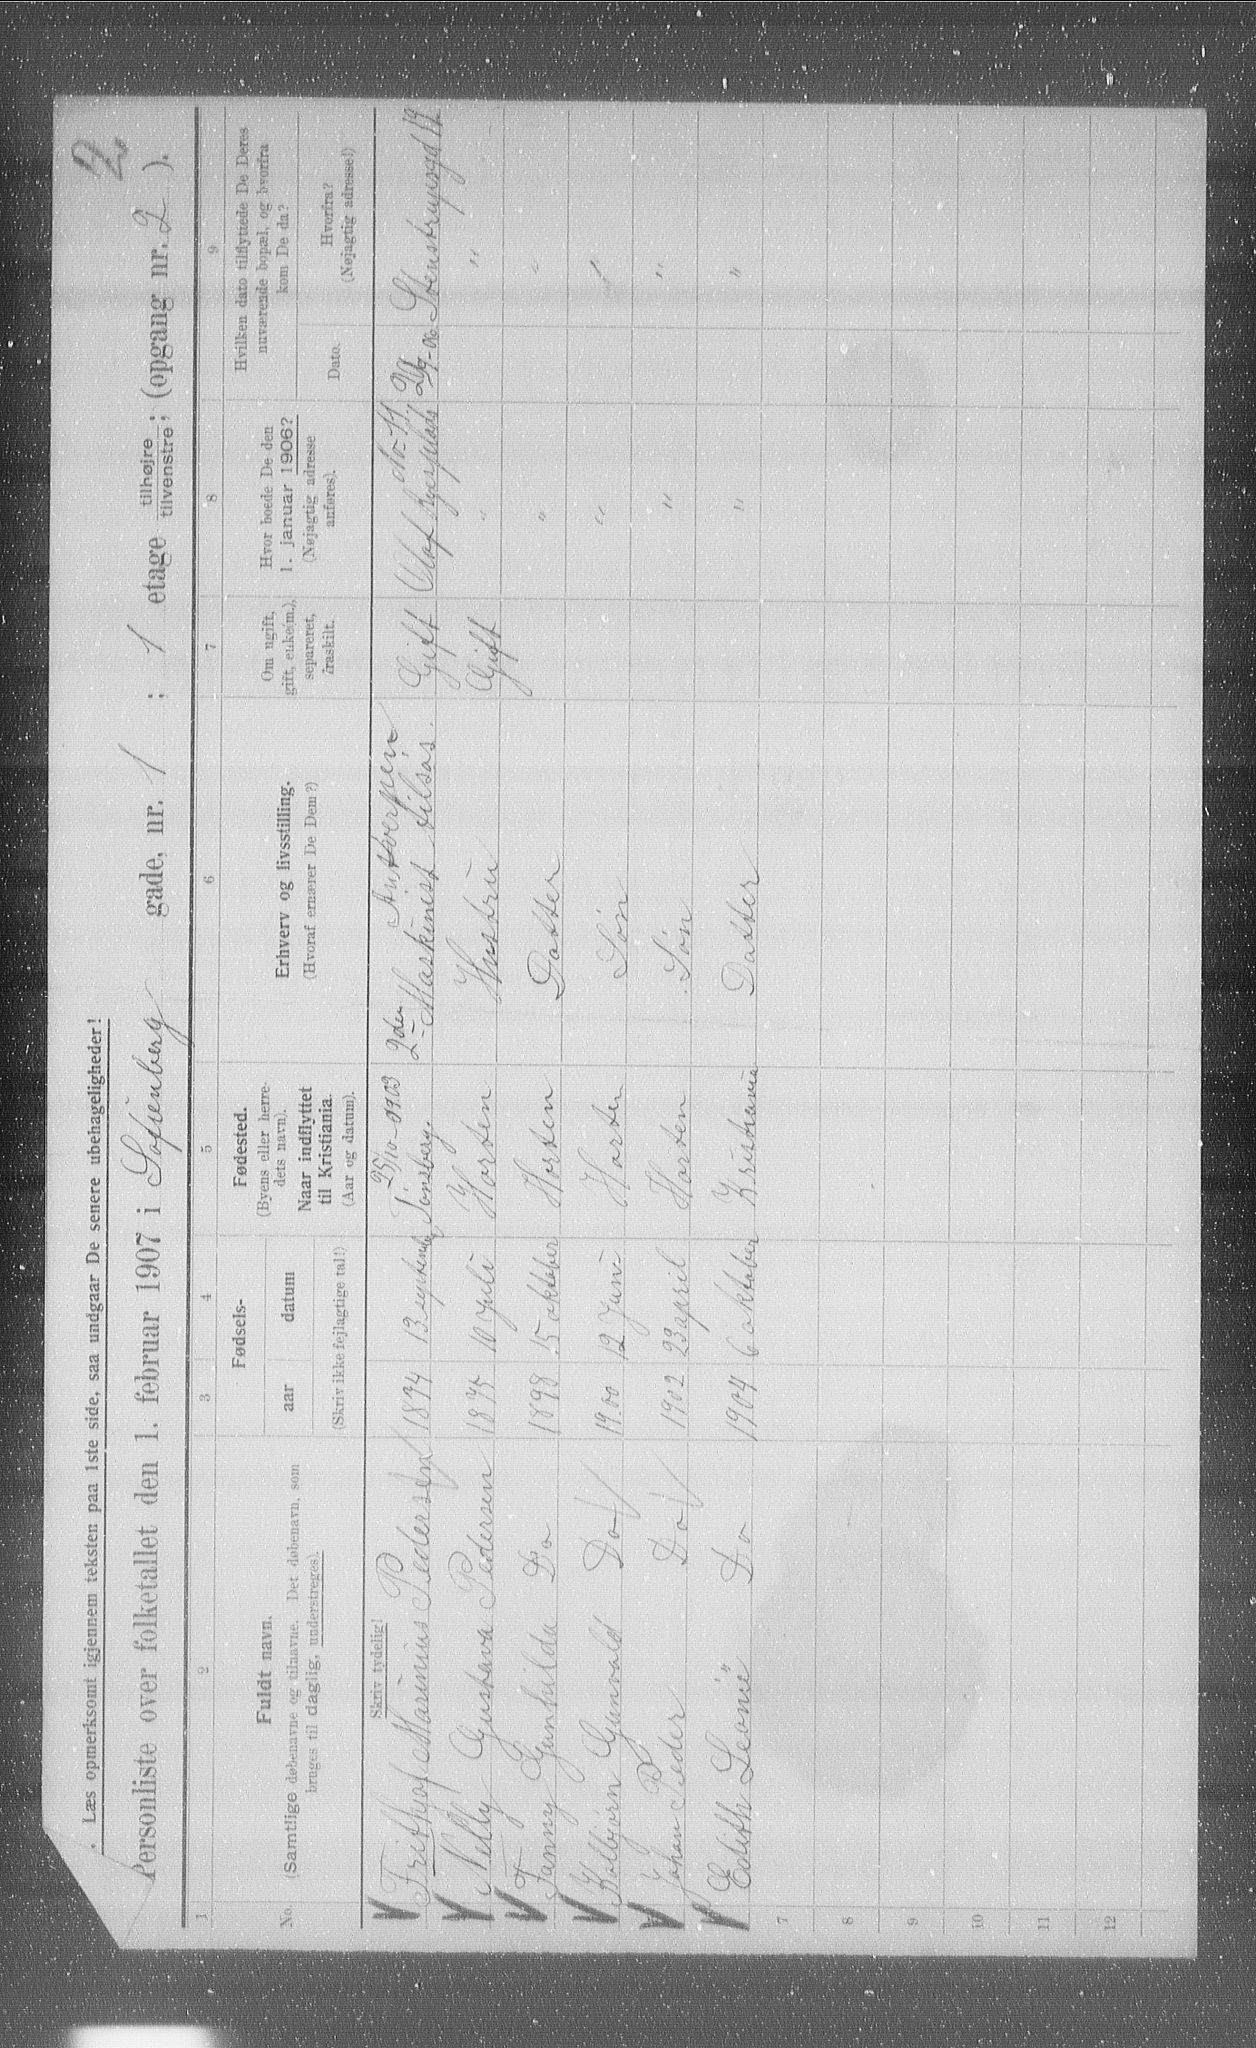 2.
Læs opmerksomt igjennem teksten paa 1ste side, saa undgaar De senere ubehageligheder!
Personliste over folketallet den 1. februar 1907 i Sofienberg gade, nr. 1 ; 1 etage tilhøjre tilvenstre; (opgang nr. 2 ).
1 2 3 4 5 6 7 8 9
No.
Fuldt navn.
(Samtlige døbenavne og tilnavne. Det døbenavn, som
bruges til daglig, understreges).
Fødsels-
aar datum
(Skriv ikke fejlagtige tal!)
Fødested.
(Byens eller herre-
dets navn).
Naar indflyttet
til Kristiania.
(Aar og datum).
Erhverv og livsstilling.
(Hvoraf ernærer De Dem?)
Om ugift,
gift, enke(m.),
separeret,
fraskilt.
Hvor boede De den
1. januar 1906?
(Nøjagtig adresse
anføres).
Hvilken dato tilflyttede De Deres
nuværende bopæl, og hvorfra
kom De da?
Dato.
Hvorfra?
(Nøjagtig adresse!)
Skriv tydelig!
25/10-1903 2den Antverpen No 11
Frithjof Marinius Pedersen 1874 13 september Tønsberg. Maskinist tilsøs. Gift Olaf Ryesplads 29/9-06 Steenstrupsgd 12
Nelly Gustava Pedersen 1875 10 Juli Horten Hustru Gift " "
Fanny Gunhilda Do 1898 15 oktober Horten Datter " "
Kolbjørn Gunvald Do 1900 12 Juni Horten Søn " "
Johan Peder Do 1902 23 april Horten Søn " "
Edith Leonie Do 1904 6 oktober Kristiania Datter " "
7
8
9
10
11
12